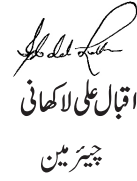 اقبال علی لاکھانی
چیئرمین